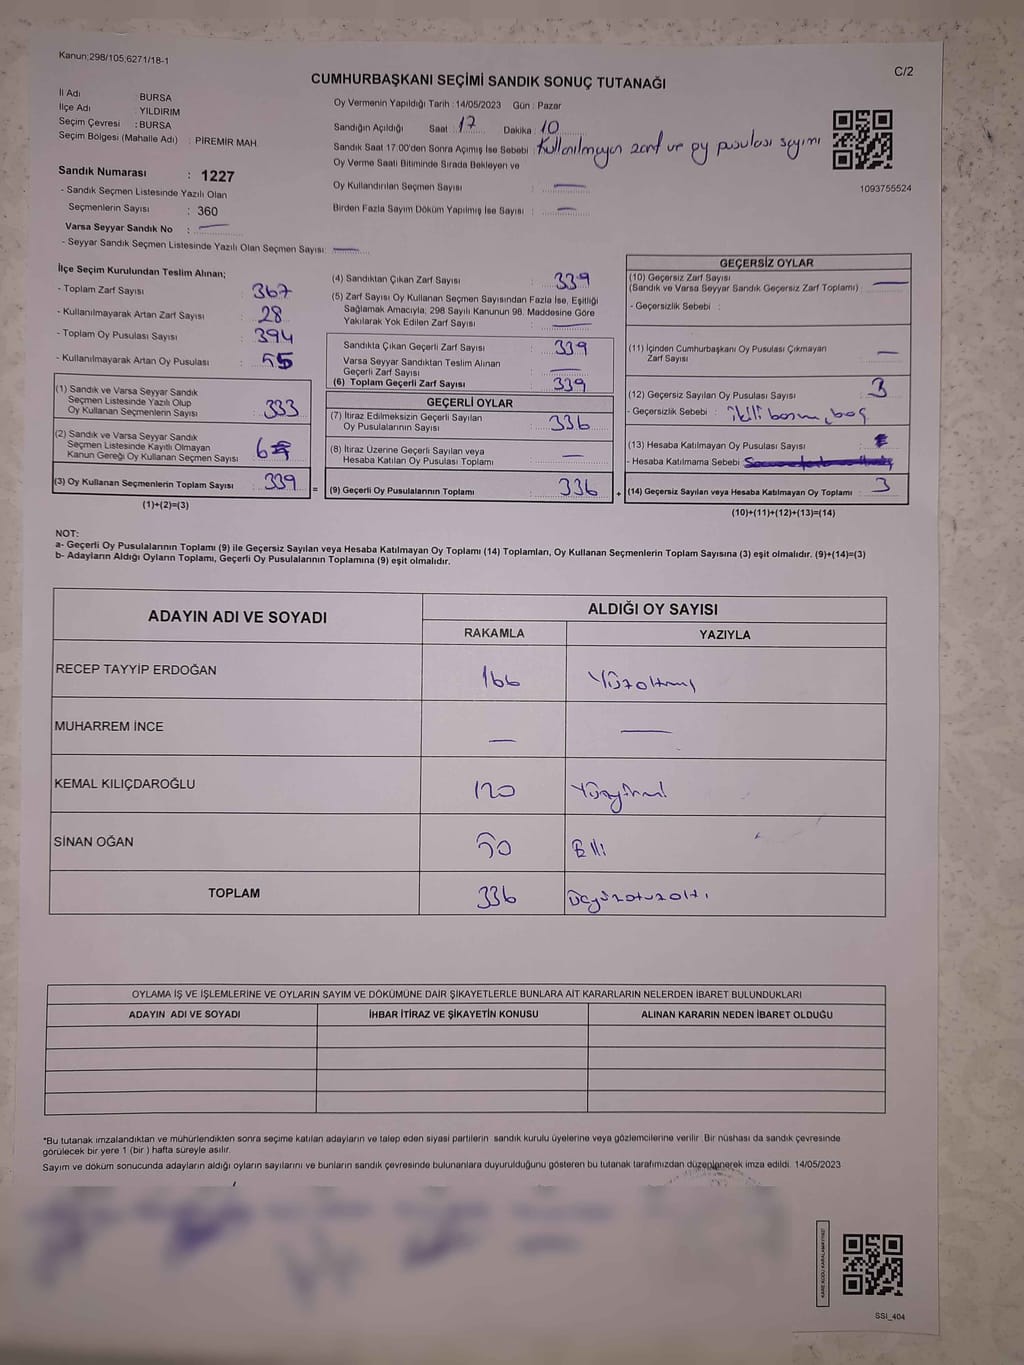 Kanun;298/105;6271/18-1
C/2
CUMHURBAŞKANI SEÇİMİ SANDIK SONUÇ TUTANAĞI
İl Adı : BURSA
İlçe Adı : YILDIRIM
Seçim Çevresi : BURSA
Seçim Bölgesi (Mahalle Adı) : PİREMİR MAH.
Sandık Numarası : 1227
- Sandık Seçmen Listesinde Yazılı Olan
Seçmenlerin Sayısı : 360
Varsa Seyyar Sandık No : —
- Seyyar Sandık Seçmen Listesinde Yazılı Olan Seçmen Sayısı: —
Oy Vermenin Yapıldığı Tarih : 14/05/2023 Gün : Pazar
Sandığın Açıldığı Saat : 17 Dakika : 10
Sandık Saat 17:00'den Sonra Açımış İse Sebebi : Kullanılmayan zarf ve oy pusulası sayımı
Oy Verme Saati Bitiminde Sırada Bekleyen ve
Oy Kullandırılan Seçmen Sayısı : —
Birden Fazla Sayım Döküm Yapılmış İse Sayısı : —
1093755524
İlçe Seçim Kurulundan Teslim Alınan;
- Toplam Zarf Sayısı : 367
- Kullanılmayarak Artan Zarf Sayısı : 28
- Toplam Oy Pusulası Sayısı : 394
- Kullanılmayarak Artan Oy Pusulası : 55
(1) Sandık ve Varsa Seyyar Sandık
Seçmen Listesinde Yazılı Olup
Oy Kullanan Seçmenlerin Sayısı : 333
(2) Sandık ve Varsa Seyyar Sandık
Seçmen Listesinde Kayıtlı Olmayan
Kanun Gereği Oy Kullanan Seçmen Sayısı : 6
(3) Oy Kullanan Seçmenlerin Toplam Sayısı : 339 =
(1)+(2)=(3)
(4) Sandıktan Çıkan Zarf Sayısı : 339
(5) Zarf Sayısı Oy Kullanan Seçmen Sayısından Fazla İse, Eşitliği
Sağlamak Amacıyla; 298 Sayılı Kanunun 98. Maddesine Göre
Yakılarak Yok Edilen Zarf Sayısı : —
Sandıkta Çıkan Geçerli Zarf Sayısı : 339
Varsa Seyyar Sandıktan Teslim Alınan
Geçerli Zarf Sayısı : —
(6) Toplam Geçerli Zarf Sayısı : 339
GEÇERLİ OYLAR
(7) İtiraz Edilmeksizin Geçerli Sayılan
Oy Pusulalarının Sayısı : 336
(8) İtiraz Üzerine Geçerli Sayılan veya
Hesaba Katılan Oy Pusulası Toplamı : —
(9) Geçerli Oy Pusulalarının Toplamı : 336 +
GEÇERSİZ OYLAR
(10) Geçersiz Zarf Sayısı
(Sandık ve Varsa Seyyar Sandık Geçersiz Zarf Toplamı) : —
- Geçersizlik Sebebi :
(11) İçinden Cumhurbaşkanı Oy Pusulası Çıkmayan
Zarf Sayısı : —
(12) Geçersiz Sayılan Oy Pusulası Sayısı : 3
- Geçersizlik Sebebi : ikili basım, boş
(13) Hesaba Katılmayan Oy Pusulası Sayısı :
- Hesaba Katılmama Sebebi :
(14) Geçersiz Sayılan veya Hesaba Katılmayan Oy Toplamı : 3
(10)+(11)+(12)+(13)=(14)
NOT:
a- Geçerli Oy Pusulalarının Toplamı (9) ile Geçersiz Sayılan veya Hesaba Katılmayan Oy Toplamı (14) Toplamları, Oy Kullanan Seçmenlerin Toplam Sayısına (3) eşit olmalıdır. (9)+(14)=(3)
b- Adayların Aldığı Oyların Toplamı, Geçerli Oy Pusulalarının Toplamına (9) eşit olmalıdır.
ADAYIN ADI VE SOYADI ALDIĞI OY SAYISI
RAKAMLA YAZIYLA
RECEP TAYYİP ERDOĞAN 166 Yüzaltmış
MUHARREM İNCE — —
KEMAL KILIÇDAROĞLU 120 Yüzyirmi
SİNAN OĞAN 50 Elli
TOPLAM 336 Üçyüzotuzaltı
OYLAMA İŞ VE İŞLEMLERİNE VE OYLARIN SAYIM VE DÖKÜMÜNE DAİR ŞİKAYETLERLE BUNLARA AİT KARARLARIN NELERDEN İBARET BULUNDUKLARI
ADAYIN ADI VE SOYADI İHBAR İTİRAZ VE ŞİKAYETİN KONUSU ALINAN KARARIN NEDEN İBARET OLDUĞU
*Bu tutanak imzalandıktan ve mühürlendikten sonra seçime katılan adayların ve talep eden siyasi partilerin sandık kurulu üyelerine veya gözlemcilerine verilir. Bir nüshası da sandık çevresinde
görülecek bir yere 1 (bir ) hafta süreyle asılır.
Sayım ve döküm sonucunda adayların aldığı oyların sayılarını ve bunların sandık çevresinde bulunanlara duyurulduğunu gösteren bu tutanak tarafımızdan düzenlenerek imza edildi. 14/05/2023
KARE KODU KARALAMAYINIZ!
SSI_404